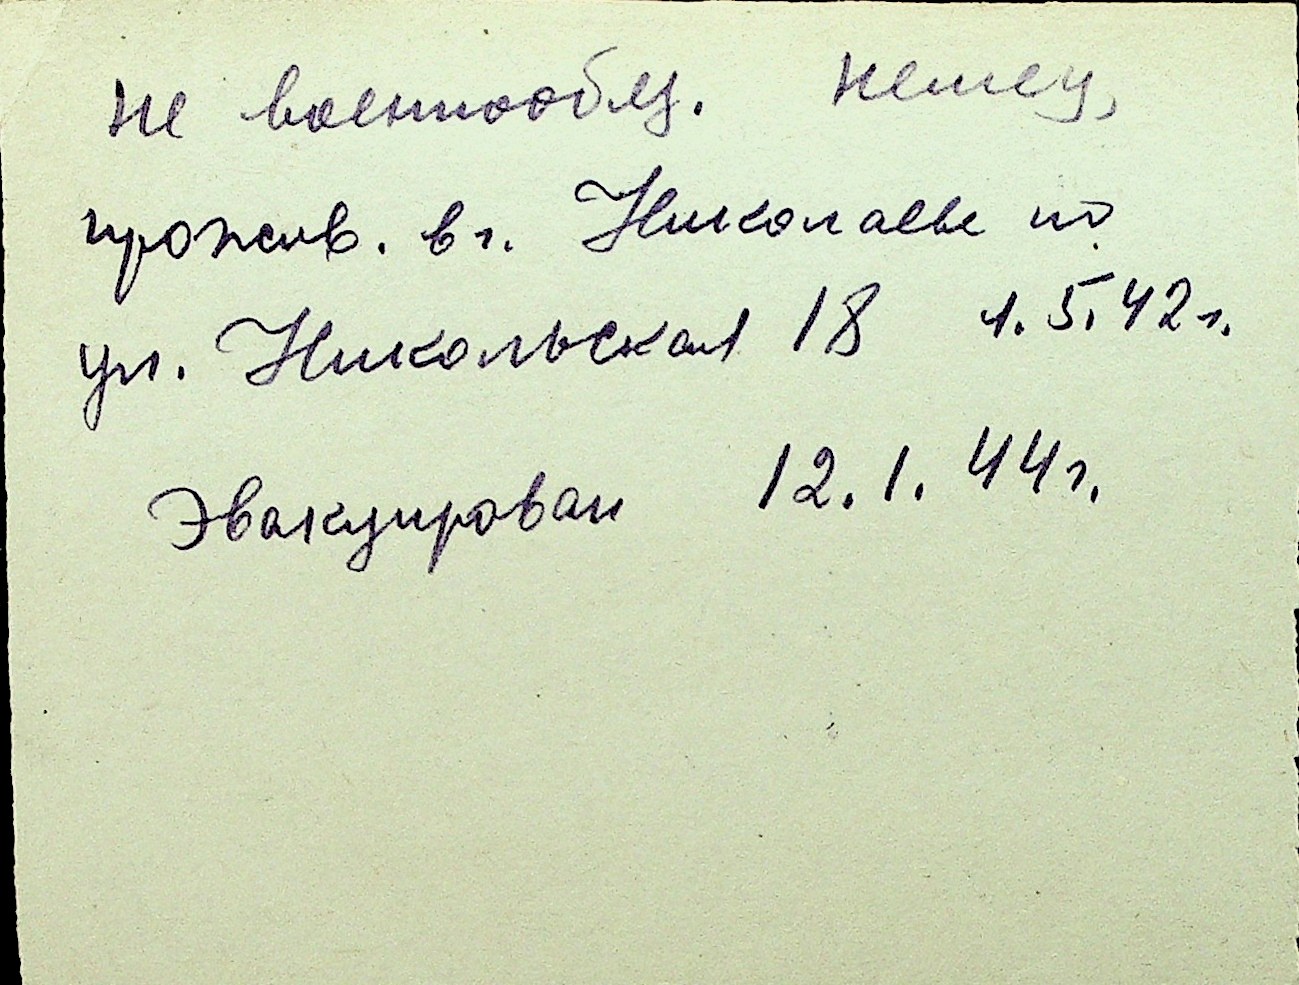 не военнообяз. немец,
прожив. в г. Николаеве по
ул. Никольская 18 1.5.42г.
Эвакуирован 12.1.44г.